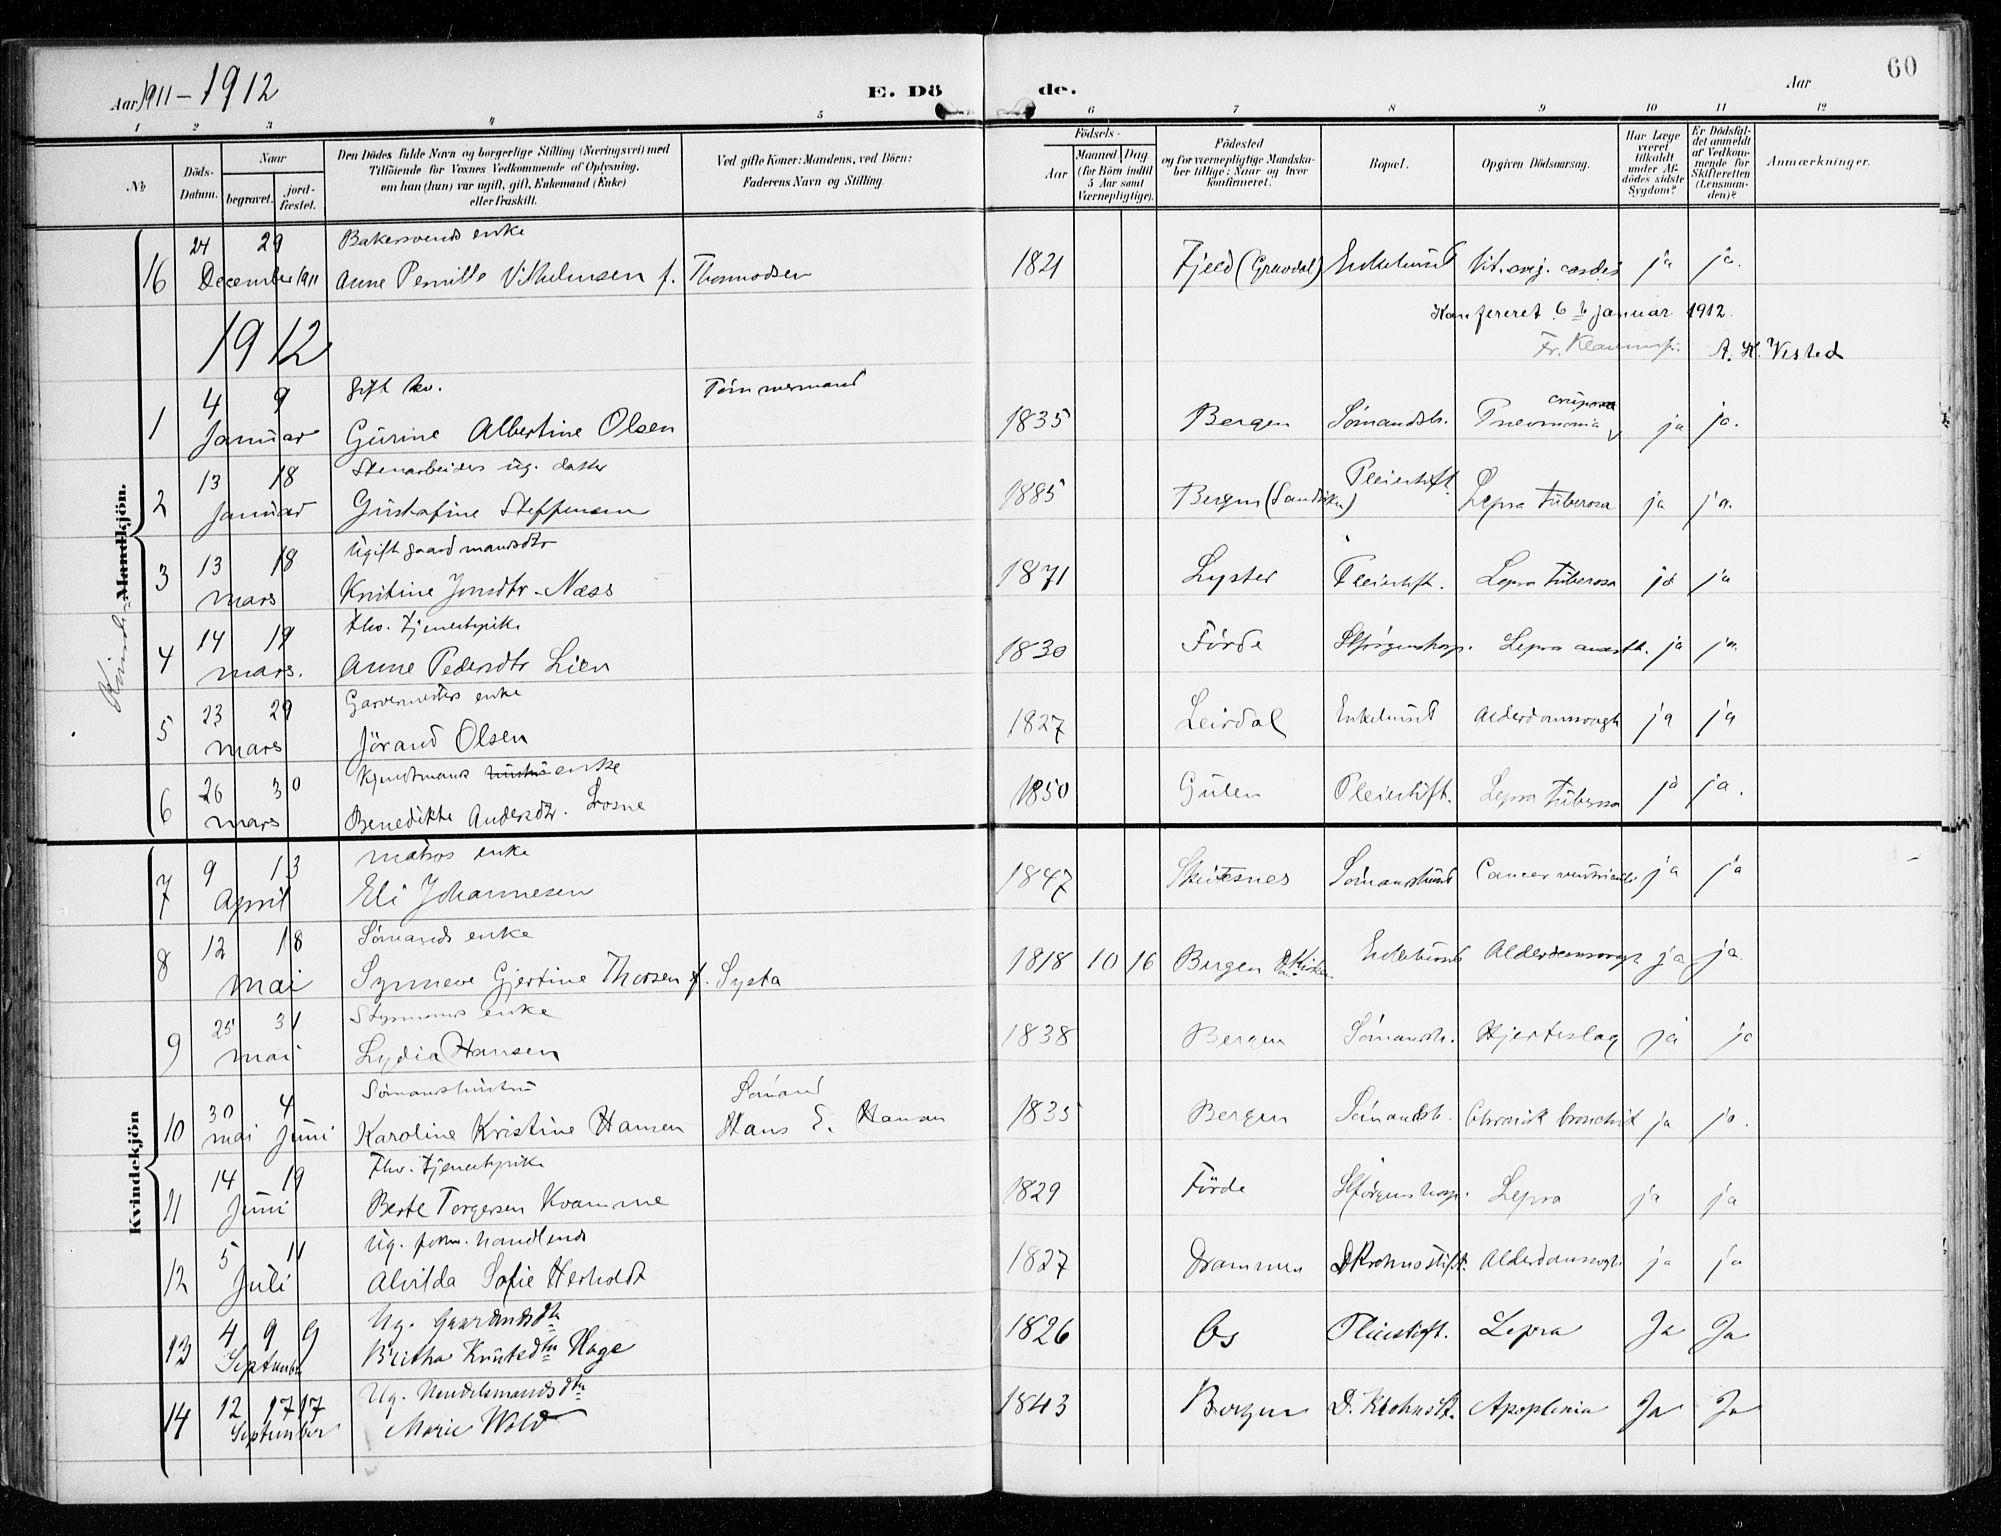 Aar 1911 – 1912
E. Dö
de.
Aar
60
1 2 3 4 5 6 7 8 9 10 11 12
No
Döds-Datum.
Naar
begravet.
jord-fæstet.
Den Dödes fulde Navn og borgerlige Stilling (Næringsvei) med
Tilföiende for Voxnes Vedkommende af Oplysning,
om han (hun) var ugift, gift, Enkemand (Enke)
eller fraskilt.
Ved gifte Koner: Mandens, ved Börn:
Faderens Navn og Stilling.
Födsels-
Aar
Maaned Dag
(for Börn indtil
5 Aar samt
Værnepligtige).
Födested
og for værnepligtige Mandska-
ber tillige: Naar og hvor
konfirmeret.
Bopæl.
Opgiven Dödsaarsag.
Har Læge
været
tilkaldt
under Af-
dödes sidste
Sygdom?
Er Dödsfal-
det anmeldt
af Vedkom-
mende for
Skifteretten
(Lensman-
den)?
Anmærkninger.
Mandkjön.
Kvindekjön
24 29 Bakersvends enke
16 December 1911 Anne Pernille Vilhelmsen f. Thormodsen 1821 Fjeld (Gravdal) Enkehuset Vit. org. cordis ja ja.
Konfereret 6 januar 1912.
A. K. Vested
1912
4 9 Gift kv. Tömmermand
1 Januar Gurine Albertine Olsen 1835 Bergen Sömandsh. Pneumonia ja ja.
13 18 Stenarbeiders ug. datter
2 Januar Gustafine Steffensen 1885 Bergen (Sandviken) Pleiestift. Lepra tuberosa ja ja.
13 18 Ugift gaardmandsdtr
3 mars Kristine Jonsdtr. Næss 1871 Lyster Pleiestift. Lepra tuberosa ja ja
14 19 Fhv. tjenestepike
4 mars. Anne Pedersdtr Lien 1830 Förde St Jörgenshosp. Lepra anæsth. ja ja
23 29 Garvermesters enke
5 mars Jörand Olsen 1827 Leirdal Enkehuset Alderdomssvagh ja ja
26 30 enke
6 mars Benedikte Andersdtr. Losne 1850 Gulen Pleiestift. Lepra tuberosa ja ja.
9 13 Matros enke
7 April Eli Johannesen 1847 Skutesnes Sömandshuset Cancer ventriculi ja ja
12 18 Sömands enke
8 mai Synneve Gjertine Thorsen f. Systa 1818 10 16 Bergen Enkehuset Alderdomssvagh ja ja.
25 31 Styrmans enke
9 mai Lydia Hansen 1838 Bergen Sömandsh. Hjerteslag ja ja
30 4 Sömandshustru Sömand
10 mai Juni Karoline Kristine Hansen Hans E. Hansen 1835 Bergen Sömandsh. Chronisk bronchit ja ja.
14 19 Fhv. tjenestepike
11 Juni Berte Torgersen Kvamme 1829 Förde St Jörgenshosp. Lepra ja ja
5 11 Ug. forh. handlende
12 Juli Alvilda Sofie Herholdt 1827 Drammen D Krohns stift. Alderdomssvagh. ja ja
4 9 9 Ug. Gaardmandsdtr
13 September Britha Knutsdtr Hage 1826 Os Pleiestift. Lepra Ja Ja
12 17 17 Ug. Handelsmandsdtr
14 September Marie Wold 1843 Bergen D. Krohns St. Apoplexia Ja Ja